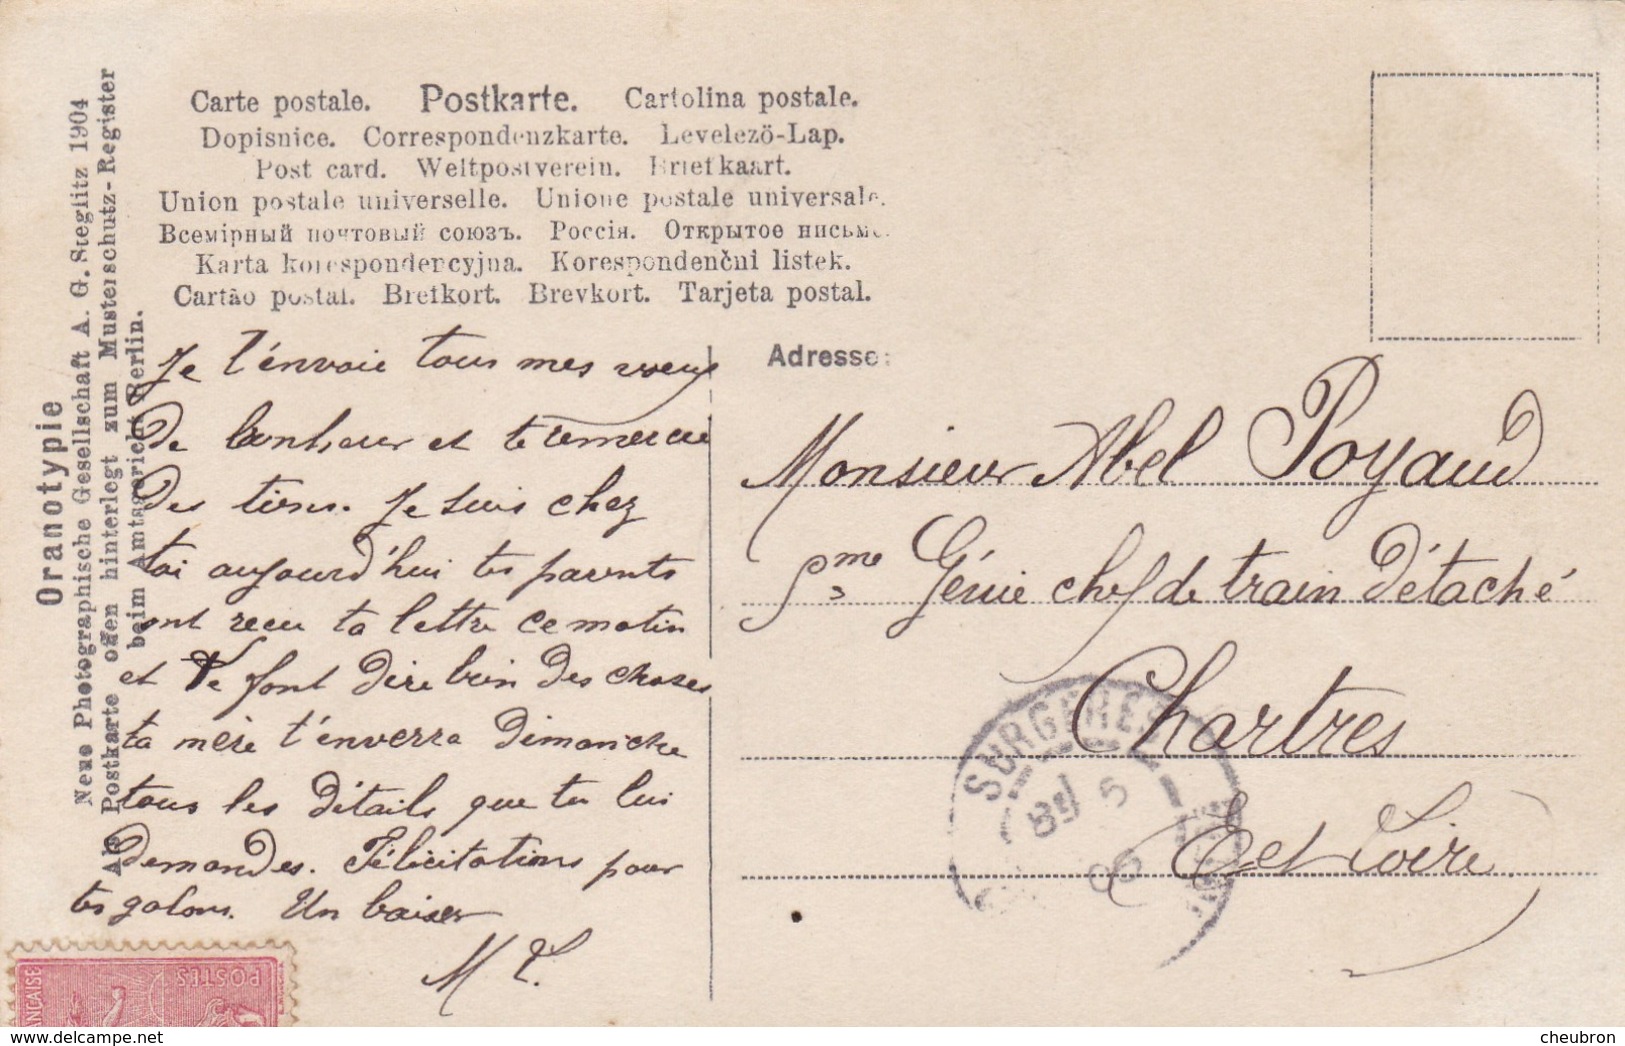 Carte postale. Postkarte. Cartolina postale.
Dopisnice. Correspondenzkarte. Levelező-Lap.
Post card. Weltpostverein. Briefkaart.
Union postale universelle. Unione postale universale.
Всемірный почтовый союзъ. Россія. Открытое письмо.
Karta korespondencyjna. Korespondenčni listek.
Cartão postal. Brefkort. Brevkort. Tarjeta postal.
Oranotypie
Neue Photographische Gesellschaft A. G. Steglitz 1904
Als Postkarte offen hinterlegt zum Musterschutz-Register
beim Amtsgericht Berlin.
Je t'énvoie tous mes voeux
de bonheur et te remercie
des tiens. Je suis chez
toi aujourd'hui tes parents
ont recu ta lettre ce matin
et te font dire bien des choses
ta mère t'énverra dimanche
tous les détails que tu lui
demandes. Félicitations pour
tes galons. Un baiser
M L.
Adresse:
Monsieur Abel Poyaud
5me Génie chef de train détaché
Chartres
E et Loire
SURGERES
POSTES